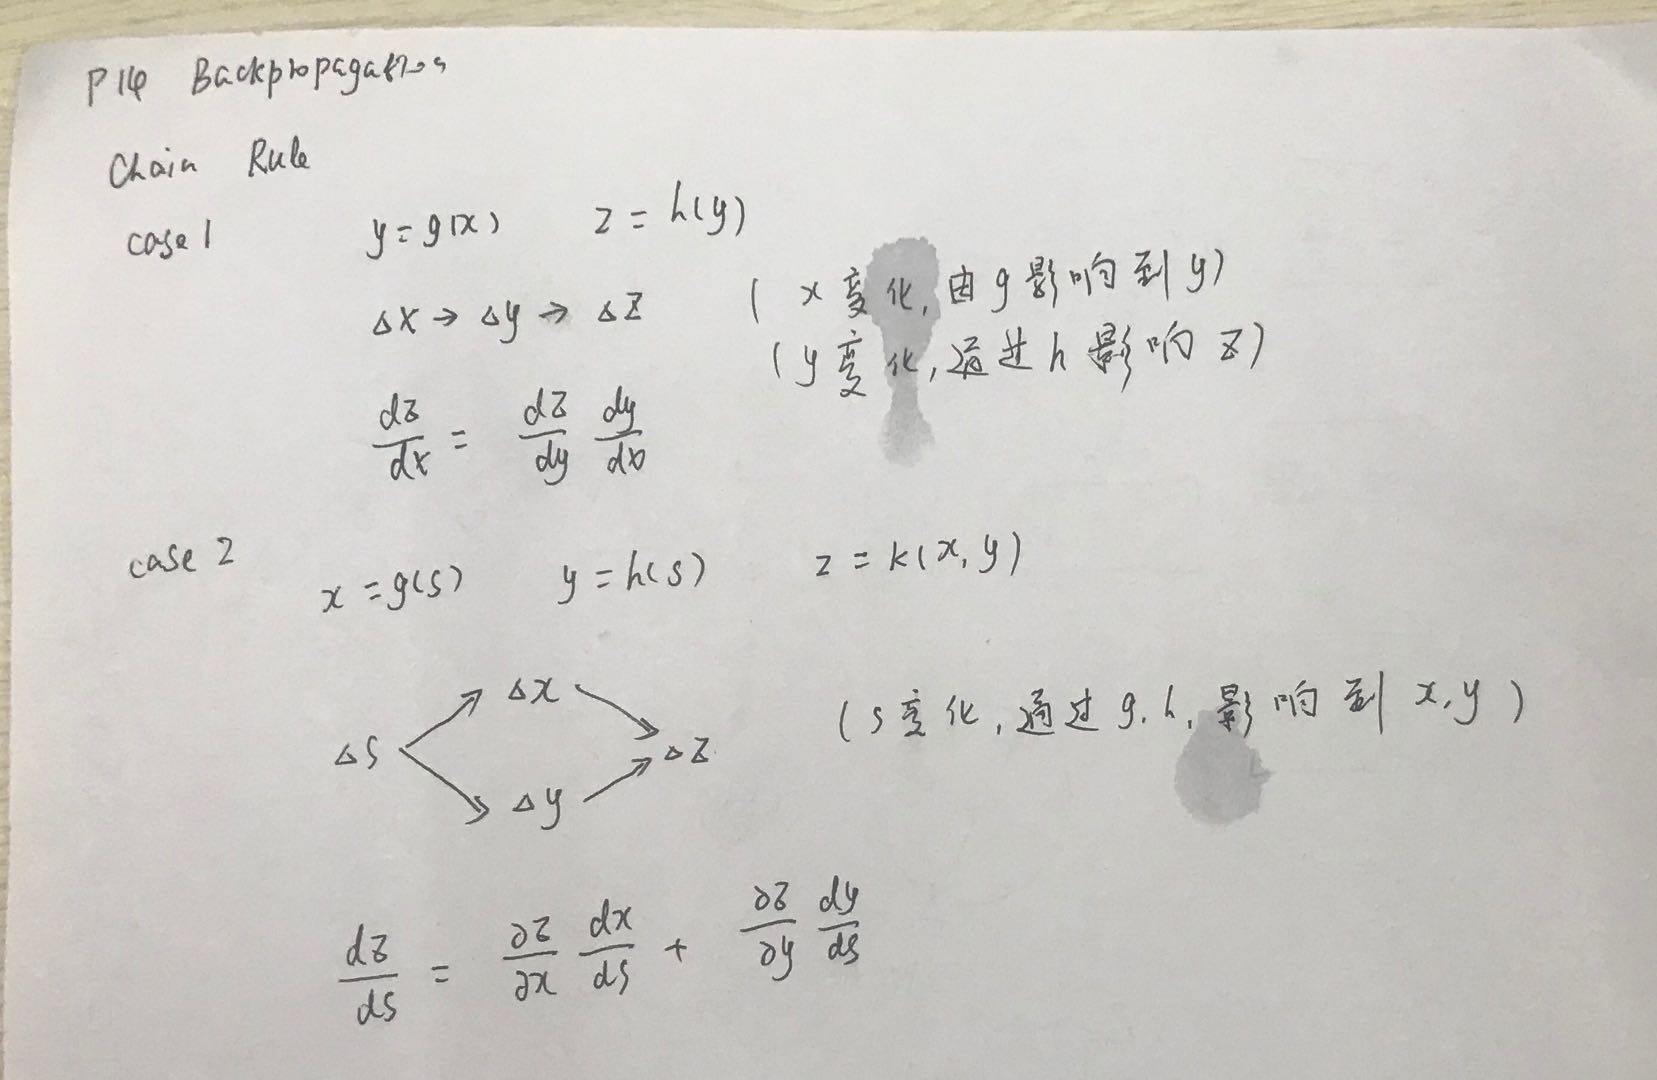 P14 Backpropagation
Chain Rule
case 1 y = g(x) z = h(y)
Δx → Δy → Δz (x变化,由g影响到y)
(y变化,通过h影响z)
dz/dx = dz/dy dy/dx
case 2 x = g(s) y = h(s) z = k(x,y)
Δx
Δs Δz (s变化,通过g,h,影响到x,y)
Δy
dz/ds = ∂z/∂x dx/ds + ∂z/∂y dy/ds